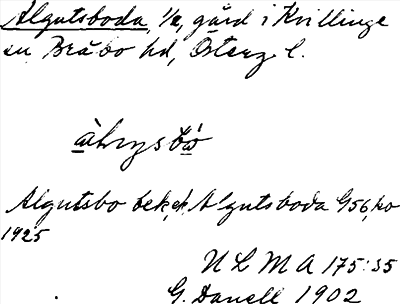 Algutsboda, 1/2, gård i Kvillinge
sn Bråbo hd, Österg. l.
Algutsbo bek, Algutsboda G56, ko
1925
ULMA 175:35
G. Danell 1902